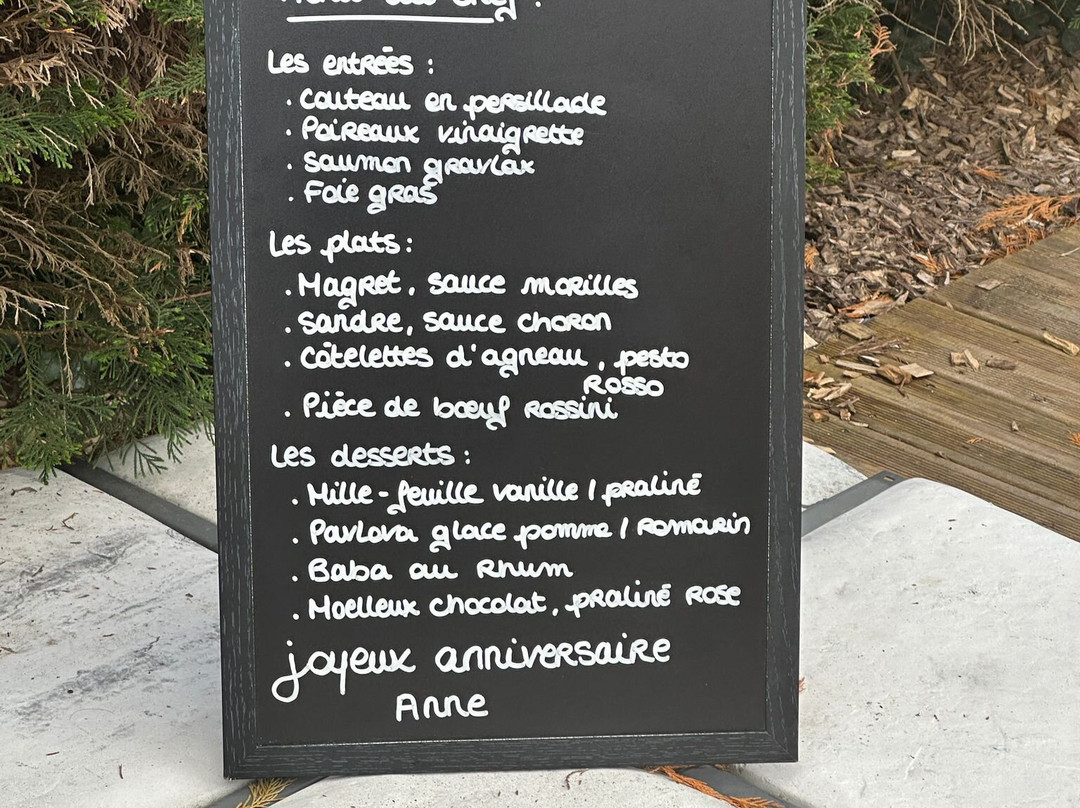 Les entrées :
. Couteau en persillade
. Poireaux vinaigrette
. Saumon gravlax
. Foie gras
Les plats :
. Magret, sauce morilles
. Sandre, sauce choron
. Côtelettes d'agneau, pesto
Rosso
. Pièce de bœuf Rossini
Les desserts :
. Mille-feuille vanille / praliné
. Pavlova glace pomme / Romarin
. Baba au Rhum
. Moelleux chocolat, praliné rose
joyeux anniversaire
Anne